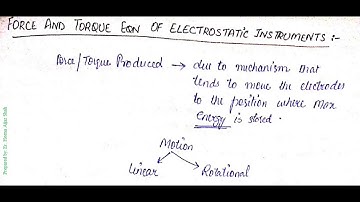 FORCE AND TORQUE EQN OF ELECTROSTATIC INSTRUMENTS :-
Force/Torque Produced → due to mechanism that
tends to move the electrodes
to the position where Max
Energy is stored.
Motion
Linear Rotational